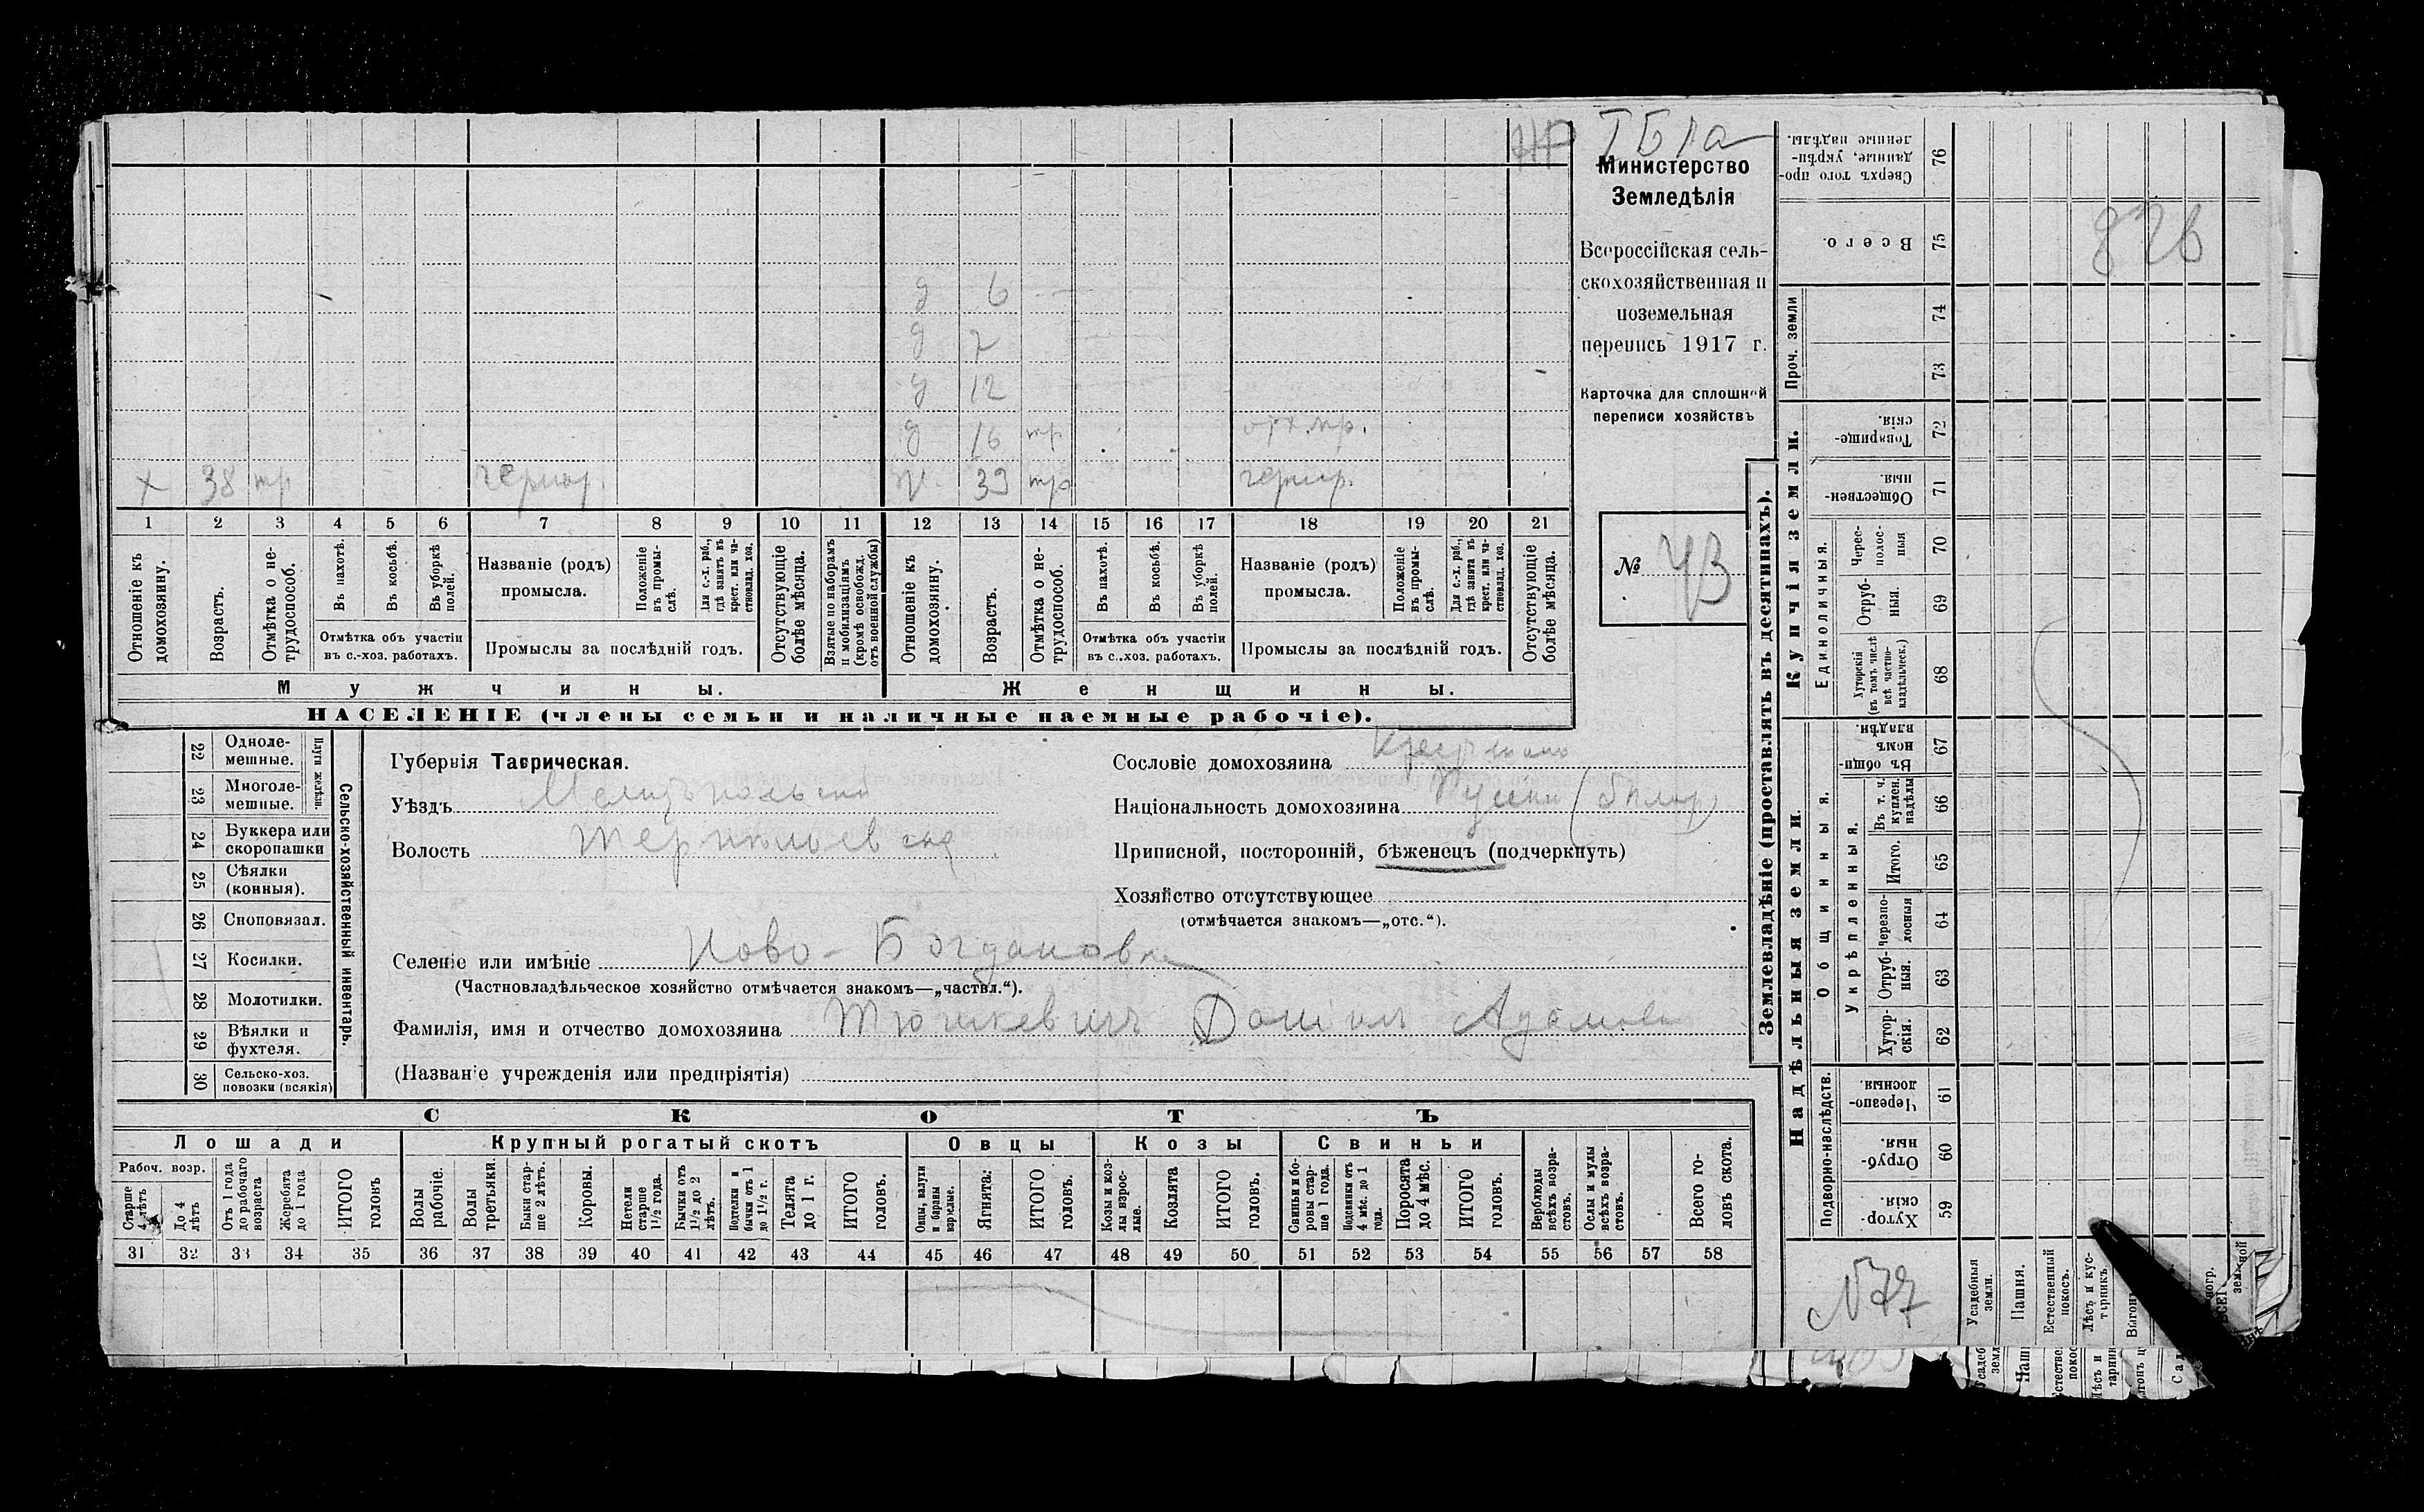 Т Б 1а
Министерство
Земледѣлія
Всероссійская сель-
скохозяйственная и
поземельная
перепись 1917 г.
Карточка для сплошной
переписи хозяйствъ
№ 43
д 6
д 7
д 12
д 16 тр отх. пр.
х 38 тр чернор. ж. 39 тр чернор.
1 2 3 4 5 6 7 8 9 10 11 12 13 14 15 16 17 18 19 20 21
Отношеніе къ домохозяину.
Возрастъ.
Отмѣтка о не-трудоспособ.
Въ пахотѣ.
Въ косьбѣ.
Въ уборкѣ полей.
Отмѣтка объ участіи
въ с.-хоз. работахъ.
Названіе (родъ)
промысла.
Положеніе въ промы-слѣ.
Для с.-х. раб., гдѣ занятъ въ крест. или ча-стновлад. хоз.
Промыслы за послѣдній годъ.
Отсутствующіе болѣе мѣсяца.
Взятые по наборамъ и мобилизаціямъ (кромѣ освобожд. отъ военной службы)
Отношеніе къ домохозяину.
Возрастъ.
Отмѣтка о не-трудоспособ.
Въ пахотѣ.
Въ косьбѣ.
Въ уборкѣ полей.
Отмѣтка объ участіи
въ с.-хоз. работахъ.
Названіе (родъ)
промысла.
Положеніе въ промы-слѣ.
Для с.-х. раб., гдѣ занята въ крест. или ча-стновлад. хоз.
Промыслы за послѣдній годъ.
Отсутствующіе болѣе мѣсяца.
Мужчины. Женщины.
НАСЕЛЕНІЕ (члены семьи и наличные наемные рабочіе).
Сельско-хозяйственный инвентарь.
Плуги желѣзн.
22 Одноле-мешные.
23 Многоле-мешные.
24 Буккера или скоропашки
25 Сѣялки (конныя).
26 Сноповязал.
27 Косилки.
28 Молотилки.
29 Вѣялки и фухтеля.
30 Сельско-хоз. повозки (всякія)
Губернія Таврическая.
Уѣздъ Мелитопольскій
Волость
Селеніе или имѣніе Ново-Богдановка
(Частновладѣльческое хозяйство отмѣчается знакомъ—„частвл.“).
Фамилія, имя и отчество домохозяина Тюшкевичъ Данiилъ Адамовъ
(Названіе учрежденія или предпріятія)
Сословіе домохозяина Крестьяне
Національность домохозяина Русскій (бѣлор)
Приписной, посторонній, бѣженецъ (подчеркнуть)
Хозяйство отсутствующее
(отмѣчается знакомъ—„отс.“).
СКОТЪ
Лошади Крупный рогатый скотъ Овцы Козы Свиньи
Рабоч. возр.
Старше 4 лѣтъ
До 4 лѣтъ
Отъ 1 года до рабочаго возраста
Жеребята до 1 года
ИТОГО головъ
Волы рабочіе.
Волы третьяки.
Быки стар-ше 2 лѣтъ.
Коровы.
Нетели старше 1½ года.
Бычки отъ 1½ до 2 лѣтъ.
Подтелки и бычки отъ 1 до 1½ г.
Телята до 1 г.
ИТОГО головъ.
Овцы, валухи и бараны взрослые.
Ягнята.
ИТОГО головъ.
Козы и коз-лы взрос-лые.
Козлята
ИТОГО головъ.
Свиньи и бо-ровы стар-ше 1 года.
Подсвинки отъ 4 мѣс. до 1 года.
Поросята до 4 мѣс.
ИТОГО головъ.
Верблюды всѣхъ возра-стовъ.
Ослы и мулы всѣхъ возра-стовъ.
Всего го-ловъ скота.
31 32 33 34 35 36 37 38 39 40 41 42 43 44 45 46 47 48 49 50 51 52 53 54 55 56 57 58
Землевладѣніе (проставлять въ десятинахъ).
Купчія земли.
Надѣльныя земли.
Сверхъ того про-данные, укрѣп-ленные надѣлы. 76
Всего. 75
Проч. земли
74
73
Товарище-скія. 72
Обществен-ныя. 71
Единоличныя.
Черес-полос-ныя 70
Отруб-ныя. 69
Хуторскія (въ томъ числѣ всѣ частно-владѣльческ.) 68
Общинныя.
Въ общин-номъ владѣн. 67
Укрѣпленныя.
Въ т. ч. куплен. надѣлы 66
Итого. 65
Черезпо-лосныя 64
Отруб-ныя. 63
Хутор-скія. 62
Подворно-наслѣдств.
Черезпо-лосныя 61
Отруб-ныя. 60
Хутор-скія. 59
826
N37
Усадебныя земли.
Пашня.
Естественный покосъ.
Лѣсъ и кус-тарникъ.